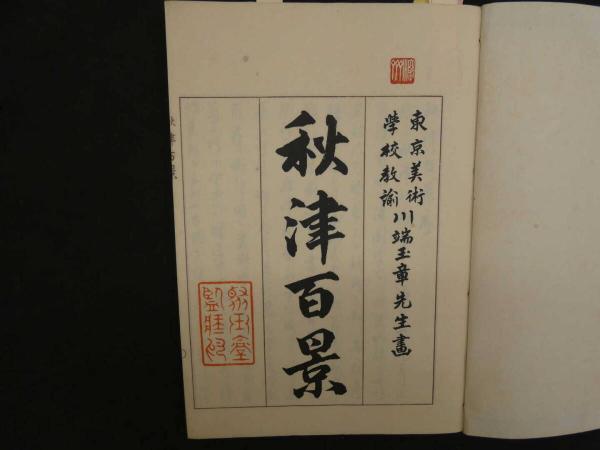 東京美術
學校教諭
川端玉章先生畫
秋津百景
秋津百景